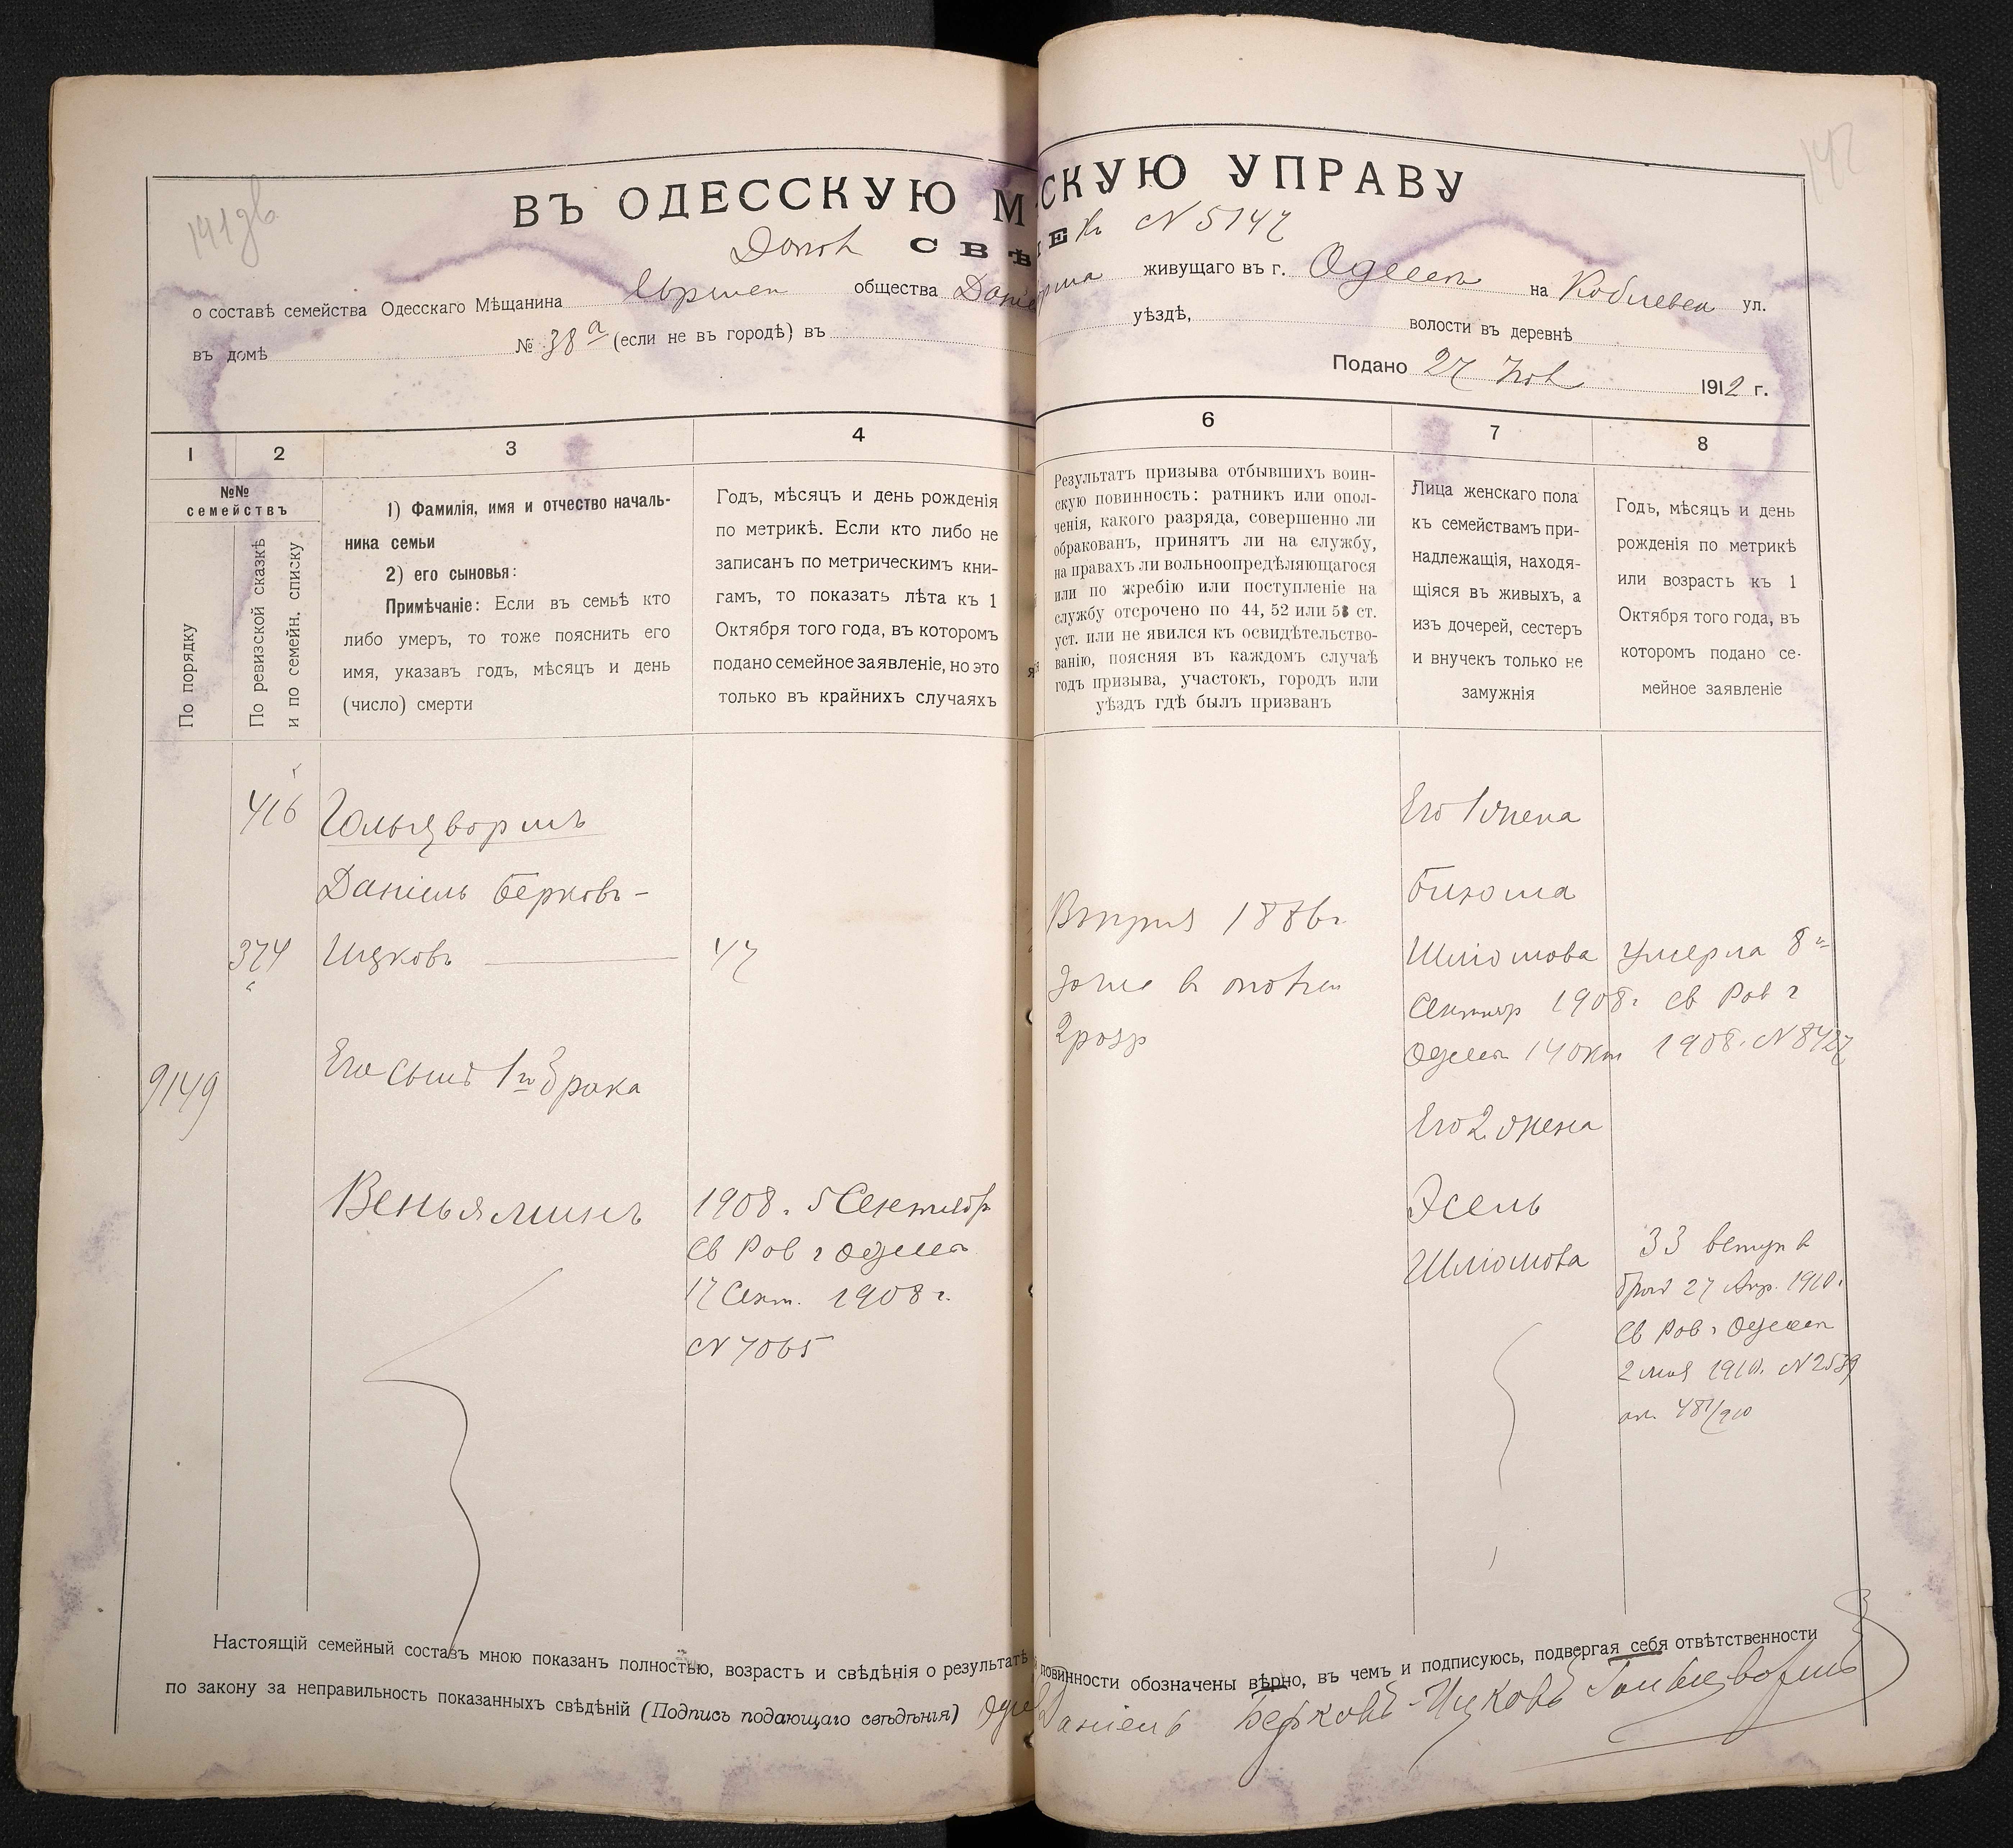 ВЪ ОДЕССКУЮ М
Допол СВѢ
о составѣ семейства Одесскаго Мѣщанина Еврейск общества Даніе
въ домѣ № 38а (если не въ городѣ) въ
1 2 3 4
№№ семействъ
По порядку
По ревизской сказкѣ и по семейн. списку
1) Фамилія, имя и отчество началь-
ника семьи
2) его сыновья:
Примѣчаніе: Если въ семьѣ кто
либо умеръ, то тоже пояснить его
имя, указавъ годъ, мѣсяцъ и день
(число) смерти
Годъ, мѣсяцъ и день рожденія
по метрикѣ. Если кто либо не
записанъ по метрическимъ кни-
гамъ, то показать лѣта къ 1
Октября того года, въ которомъ
подано семейное заявленіе, но это
только въ крайнихъ случаяхъ
416 Гольцвормъ
Даніель Берковъ-
374 Ицковъ 47
Его сынъ 1го брака
9149
Веньяминъ 1908. 5 Сентября
Св Рав г Одессы
17 Сент. 1908 г.
N 7065
Настоящій семейный составъ мною показанъ полностью, возрастъ и свѣдѣнія о результатѣ
по закону за неправильность показанныхъ свѣдѣній (Подпись подающаго свѣдѣнія)
СКУЮ УПРАВУ
Е Къ N 5147
живущаго въ г. Одессѣ на Коблевск ул.
уѣздѣ, волости въ деревнѣ
Подано 27 Ноя 1912 г.
6 7 8
Результатъ призыва отбывшихъ воин-
скую повинность: ратникъ или опол-
ченія, какого разряда, совершенно ли
обракованъ, принятъ ли на службу,
на правахъ ли вольноопредѣляющагося
или по жребію или поступленіе на
службу отсрочено по 44, 52 или 53 ст.
уст. или не явился къ освидѣтельство-
ванію, поясняя въ каждомъ случаѣ
годъ призыва, участокъ, городъ или
уѣздъ гдѣ былъ призванъ
Лица женскаго пола
къ семействамъ при-
надлежащія, находя-
щіяся въ живыхъ, а
изъ дочерей, сестеръ
и внучекъ только не
замужнія
Годъ, мѣсяцъ и день
рожденія по метрикѣ
или возрастъ къ 1
Октября того года, въ
которомъ подано се-
мейное заявленіе
Его 1 жена
1886г
2 разр
Шліомова умерла 8го
Сентяр 1908г Св Рав г
Одессы 14 окт 1908. N 8427
Его 2 жена
Эсель
Шліомова 33 вступ в
бракъ 27 Апр. 1910.
Св Рав г Одессы
2 мая 1910. N 2539
повинности обозначены вѣрно, въ чемъ и подписуюсь, подвергая себя отвѣтственности
Даніель Берковъ-Ицковъ Гольцвормъ